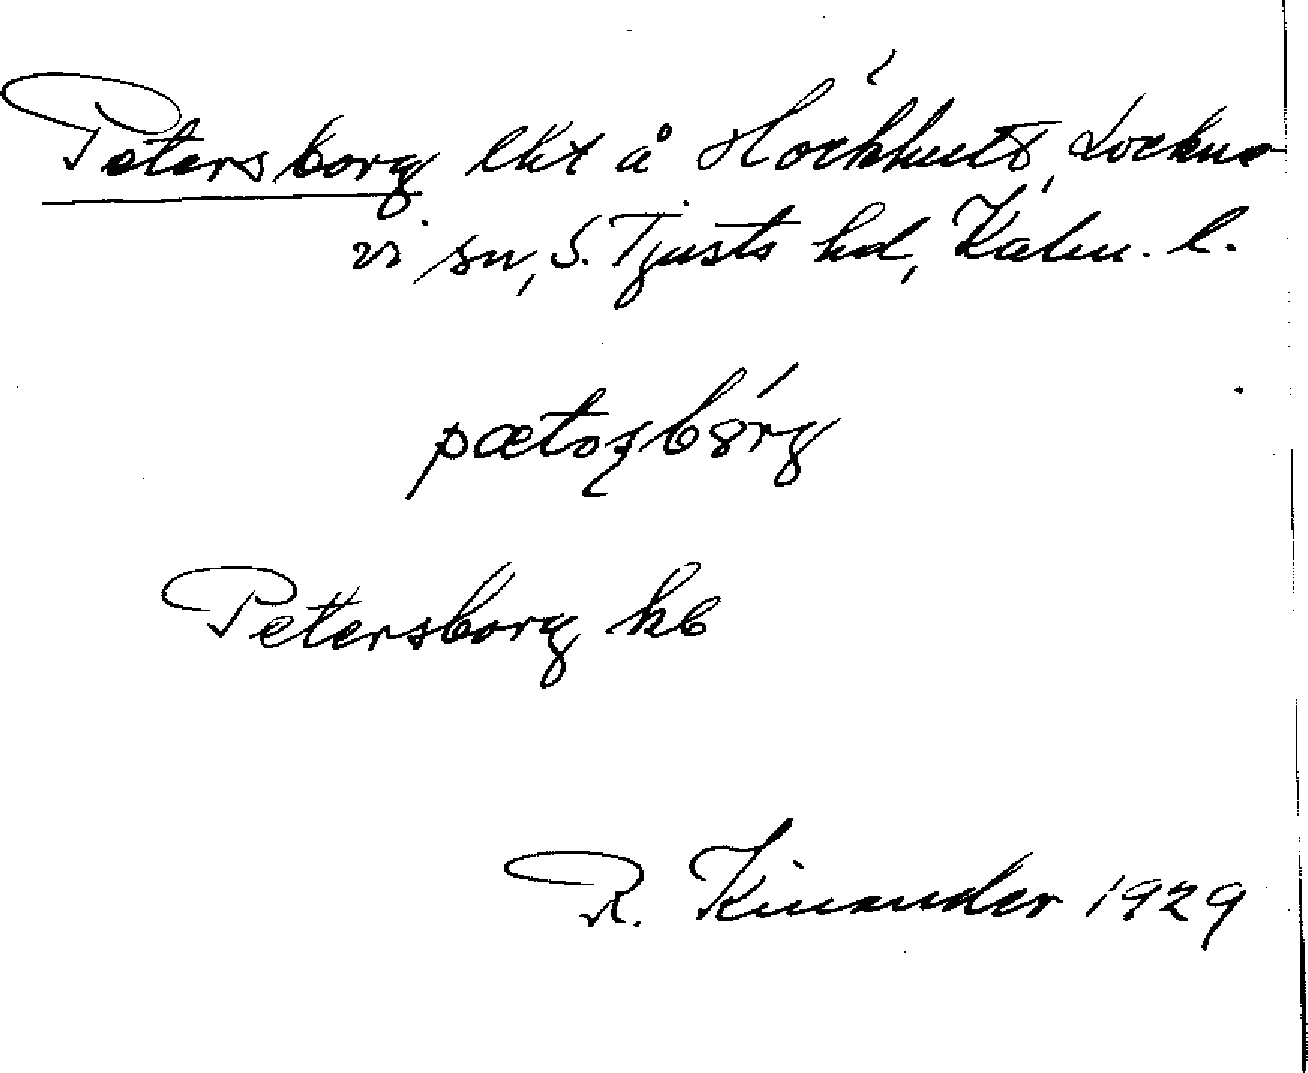 Petersborg lht å Höckhult, Lockne
vi sn, S. Tjusts hd, Kalm. l.
Petersborg kb
R. Kinander 1929